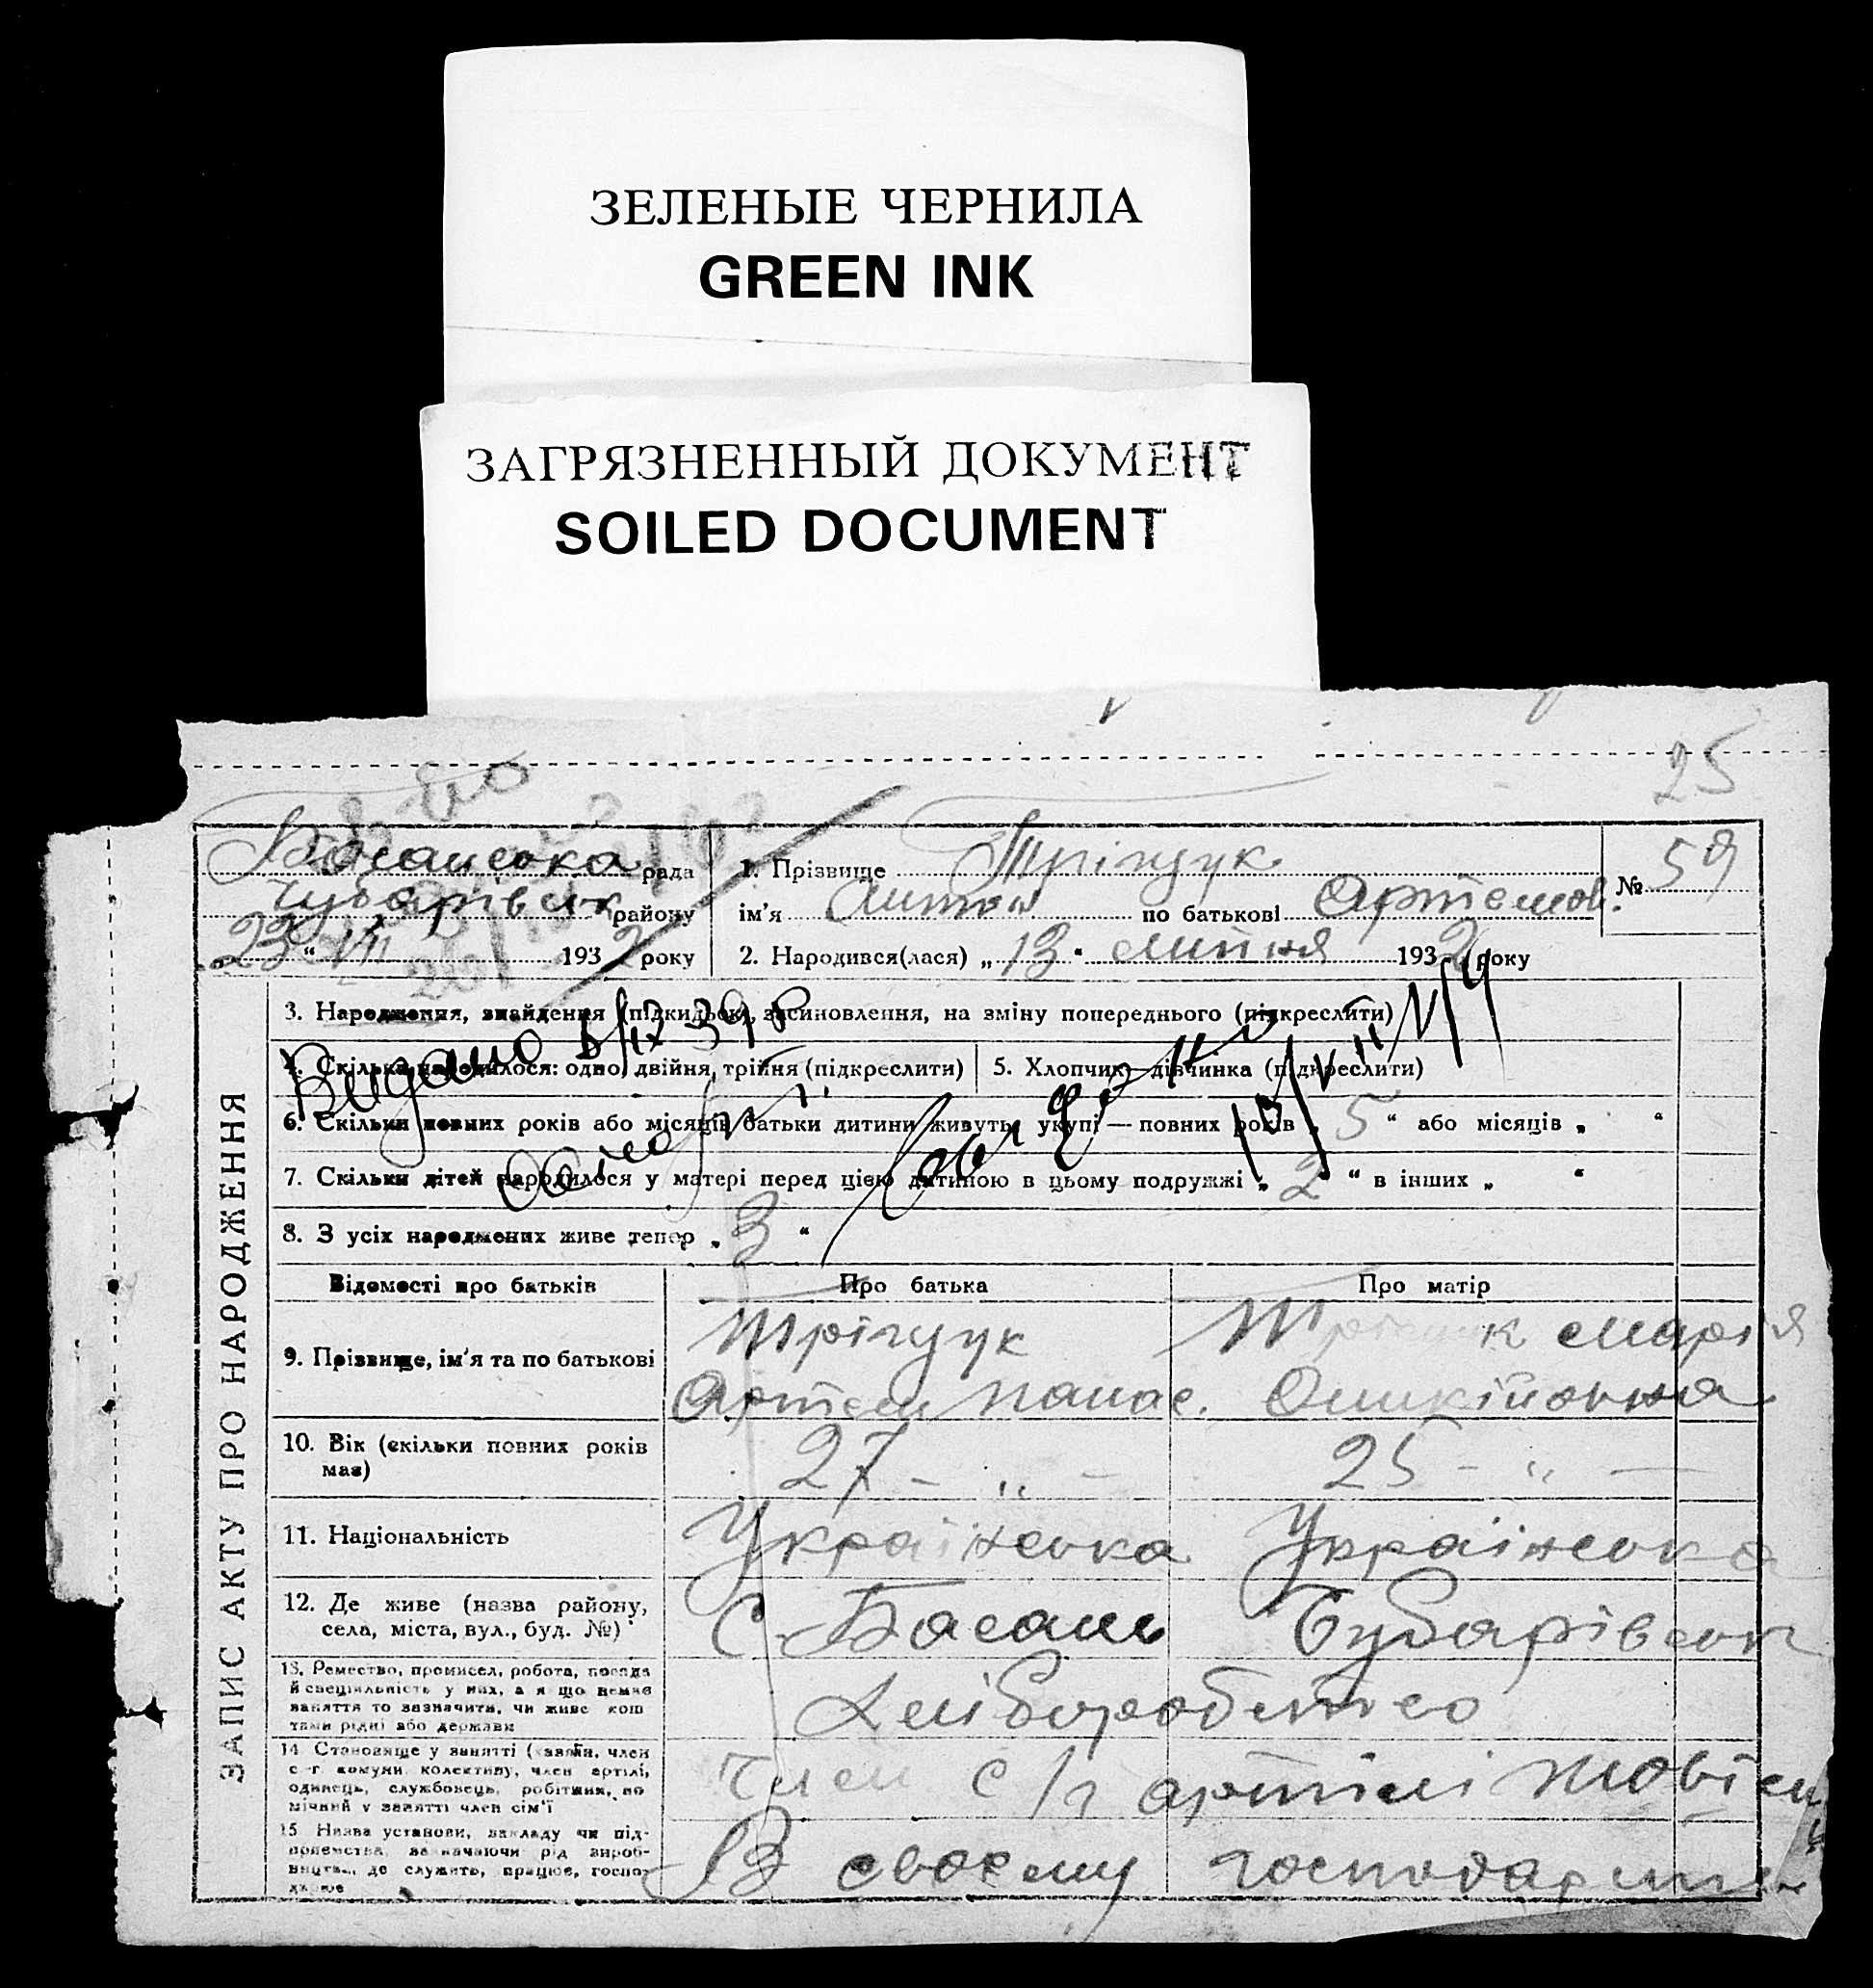 ЗЕЛЕНЫЕ ЧЕРНИЛА
GREEN INK
ЗАГРЯЗНЕННЫЙ ДОКУМЕНТ
SOILED DOCUMENT
25
Басанська рада
Чубарівськ району
„23“ VII 1932 року
1. Прізвище Трігук
ім'я Антон по батькові Артемов.
№ 59
2. Народився(лася) „13“ липня 1932 року
ЗАПИС АКТУ ПРО НАРОДЖЕННЯ
3. Народження, знайдення (підкидьок), засиновлення, на зміну попереднього (підкреслити)
4. Скільки народилося: одно, двійня, трійня (підкреслити)
5. Хлопчик—дівчинка (підкреслити)
6. Скільки повних років або місяців батьки дитини живуть укупі — повних років „5“ або місяців „ “
7. Скільки дітей народилося у матері перед цією дитиною в цьому подружжі „2“ в інших „ “
8. З усіх народжених живе тепер „3“
Видано
Відомості про батьків
Про батька
Про матір
9. Прізвище, ім'я та по батькові
Трігук
Артем Панас.
Марія
10. Вік (скільки повних років має)
27 - „ -
25 - „ —
11. Національність
Українська
Українська
12. Де живе (назва району,
села, міста, вул., буд. №)
С. Басань
Чубарівськ
13. Ремество, промисел, робота, посада
й спеціяльність у них, а якщо немає
заняття то зазначити, чи живе кош
тами рідні або держави
Хліборобство
14 Становище у занятті (хазяїн, член
с-г комуни, колективу, член артілі,
одинець, службовець, робітник, по
мічний у занятті член сім'ї
Член с/г артілі
15 Назва установи, закладу чи під-
приємства, зазначаючи рід вироб-
ництва, де служить, працює, госпо-
дарює
В своєму господарстві